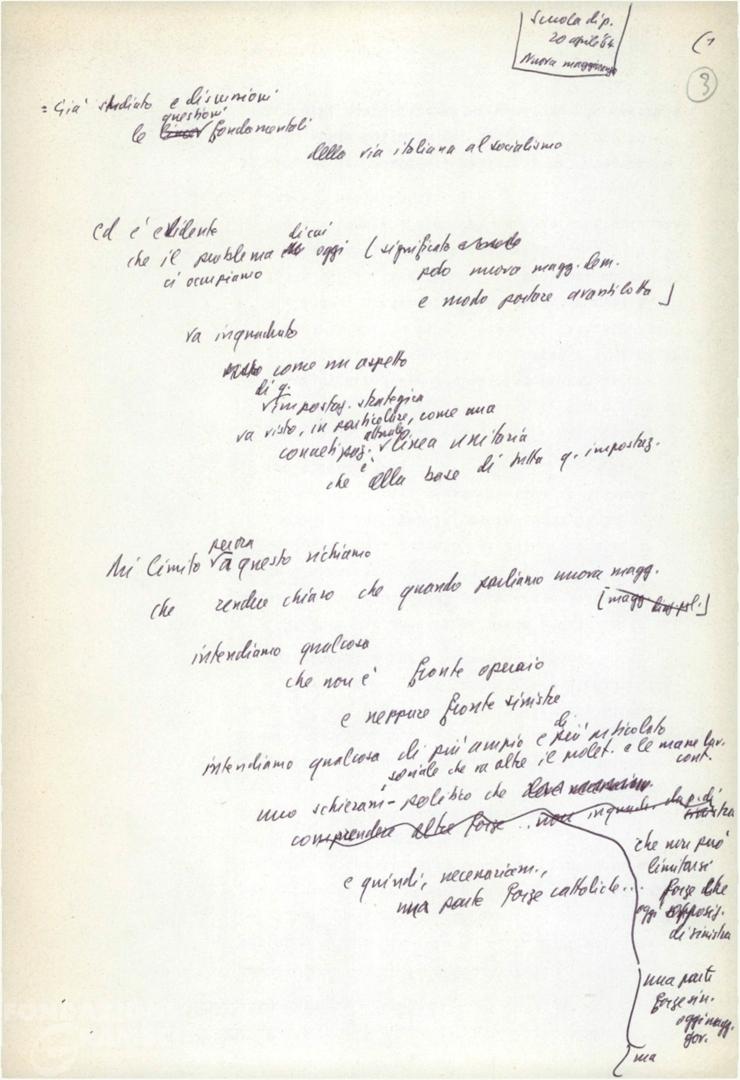 Scuola di p.
20 aprile '64
Nuova maggioranza
(1
3
= Già studiato e discussioni
questioni
le fondamentali
della via italiana al socialismo
Ed è evidente
di cui
che il problema oggi (significato
ci occupiamo
pdo nuova magg. dem.
e modo portare avanti lotta)
va inquadrato
come un aspetto
di q.
impostaz. strategica
va visto, in particolare, come una
attuale
concetizzaz. linea unitaria
che è alla base di tutta q. impostaz.
Mi limito a questo richiamo
che rende chiaro che quando parliamo nuova magg.
intendiamo qualcosa
che non è fronte operaio
e neppure fronte sinistre
di
intendiamo qualcosa di più ampio e più articolato
sociale che va oltre il prolet. e le masse lav.
cont.
uno schieram - politico che
comprenda altre forze .. non
e quindi, necessariam.,
una parte forze cattoliche ...
che non può
limitarsi
forze che
oggi opposiz.
di sinistra
una parte
forze sin.
oggi magg.
gov.
ma
FONDAZIONE